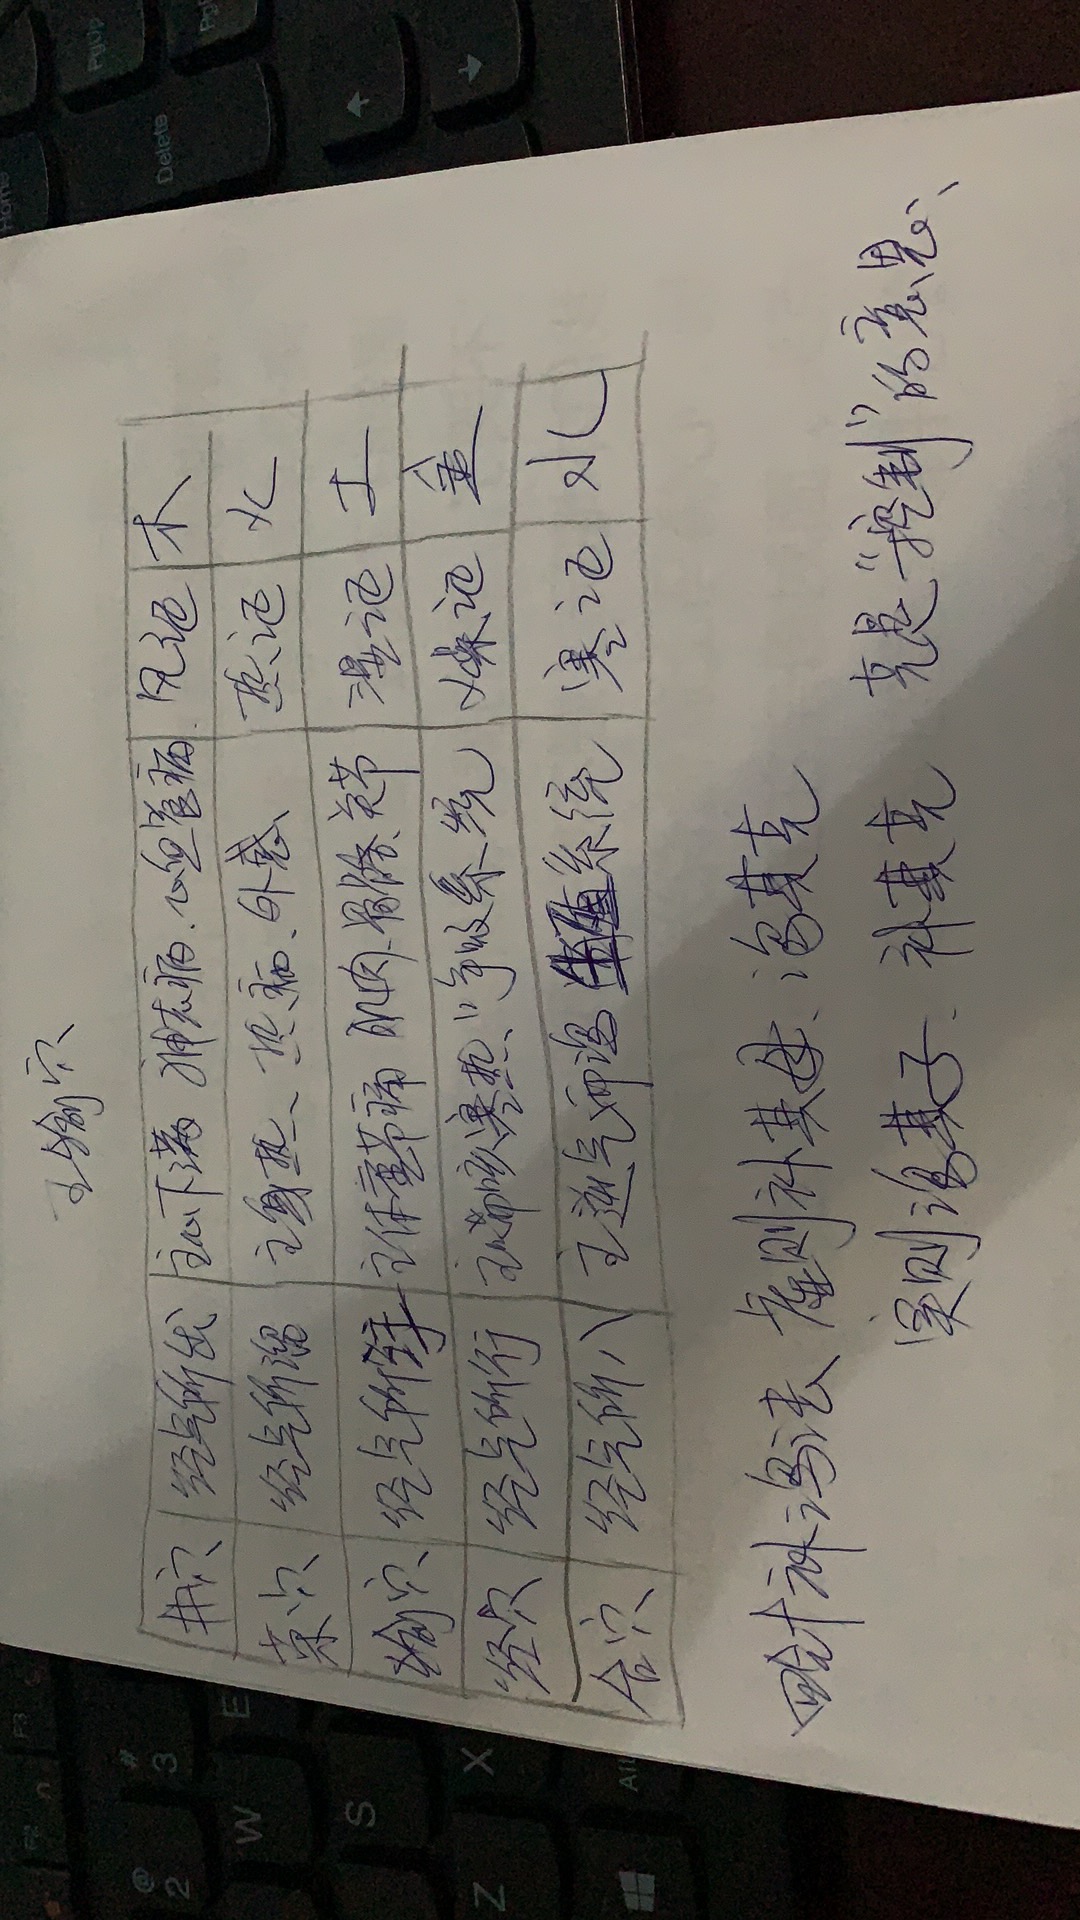 五输穴
井穴 经气所出 主心下满 神志病、心血管病 风证 木
荥穴 经气所溜 主身热、热病、外感 热证 火
输穴 经气所注 主体重节痛 肌肉、骨骼、关节 湿证 土
经穴 经气所行 主喘咳寒热、呼吸系统 燥证 金
合穴 经气所入 主逆气而泄 生殖系统 寒证 水
四针补泻法 虚则补其母、泻其克
实则泻其子、补其克 克是“控制”的意思、
PgUp
Delete
Home
E
W
S
X
Z
# 3
@ 2
F3